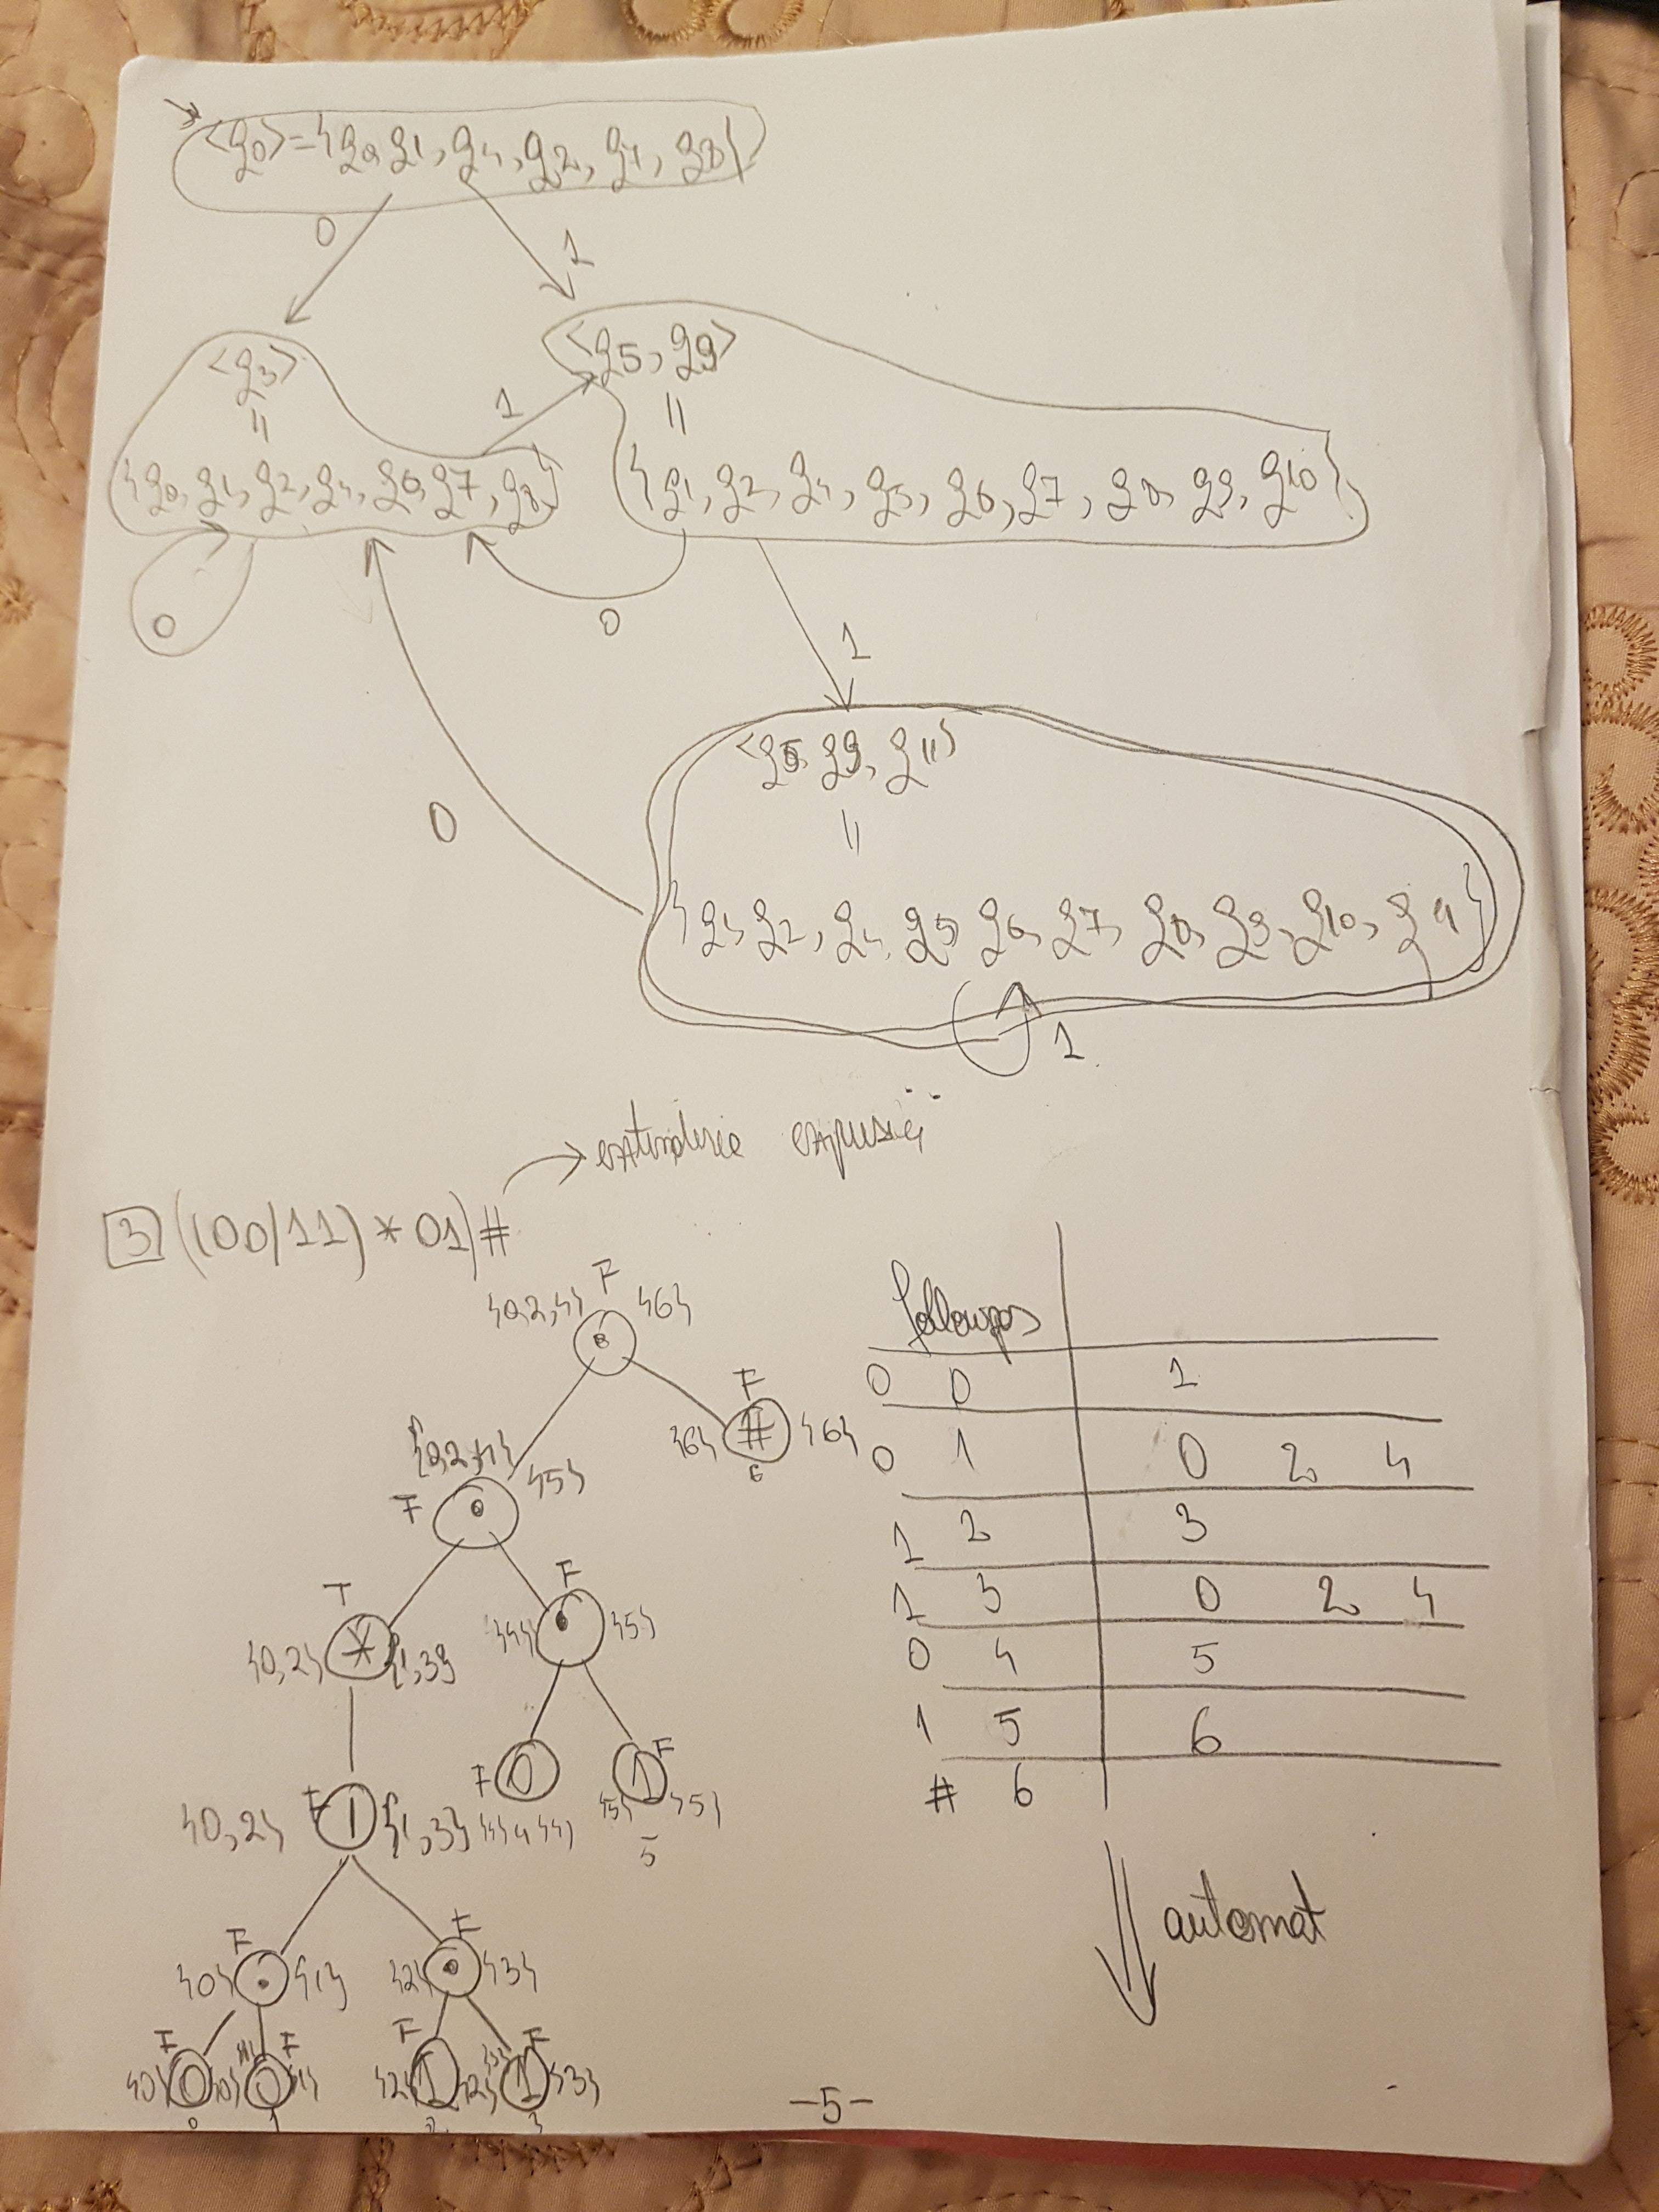 <q0>={q0, q1, q4, q2, q7, q8}
0
1
<q3>
<q5, q9>
1
=
=
{q0, q1, q2, q4, q6, q7, q8}
{q1, q2, q4, q5, q6, q7, q8, q9, q10}
0
0
1
<q5, q9, q11>
0
=
{q1, q2, q4, q5, q6, q7, q8, q9, q10, q11}
1
→ extinderea expresiei
3 ((00/11)*01)#
F
{0,2,4} • {6}
F
{6} # {6}
6
{0,2,4}
F • {5}
T
{0,2} * {1,3}
F
{4} • {5}
F 0
{4} 4 {4}
1 F
{5} {5}
5
{0,2} F | {1,3}
F
{0} • {1}
F
{2} • {3}
F F F F
{0} 0 {0} {1} 0 {1} {2} 1 {2} {3} 1 {3}
0 1 2 3
followpos
0 0 1
0 1 0 2 4
1 2 3
1 3 0 2 4
0 4 5
1 5 6
# 6
automat
-5-